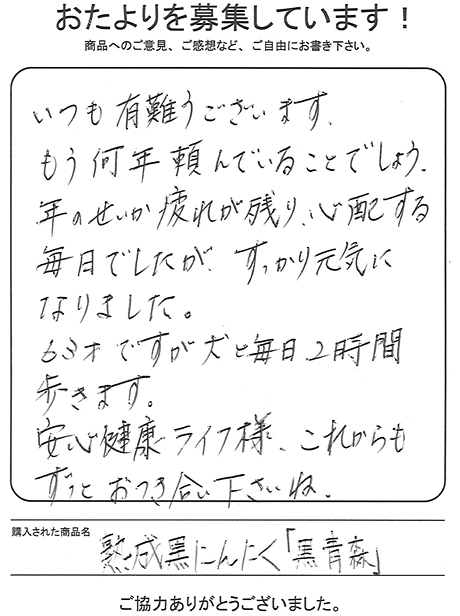 おたよりを募集しています！
商品へのご意見、ご感想など、ご自由にお書き下さい。
いつも有難うございます、
もう何年頼んでいることでしょう、
年のせいか疲れが残り、心配する
毎日でしたが、すっかり元気に
なりました。
63才ですが犬と毎日2時間
歩きます。
安心健康ライフ様、これからも
ずっとおつき合い下さいね。
購入された商品名
熟成黒にんにく「黒青森」
ご協力ありがとうございました。